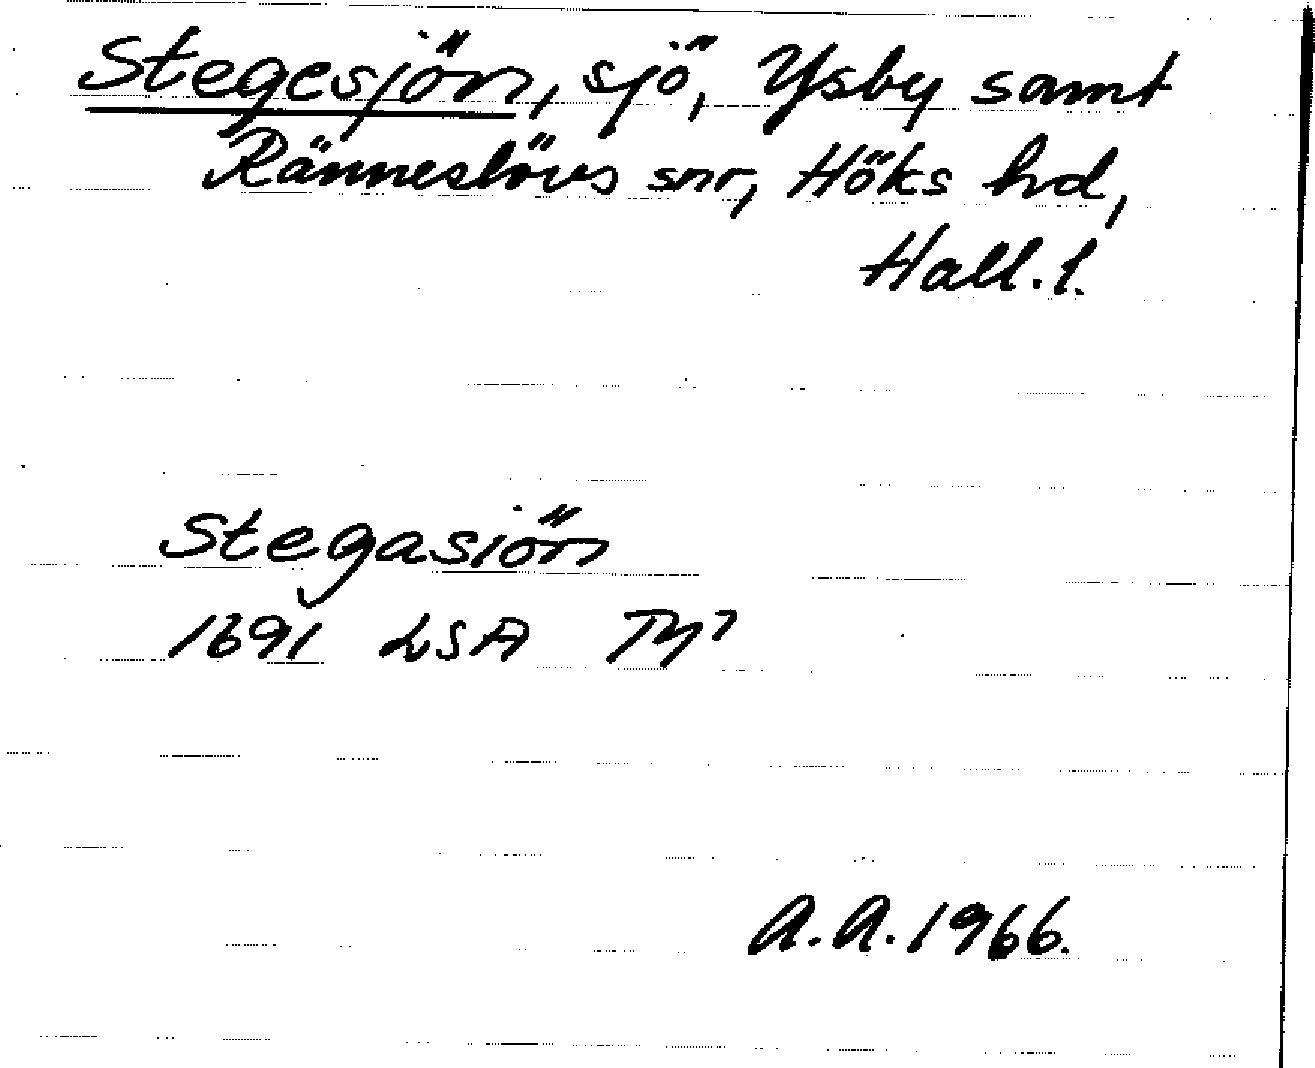 Stegesjön, sjö, Ysby samt
Ränneslövs snr, Höks hd,
Hall. l.
Stegasiön
1691 LSA
A.A. 1966.